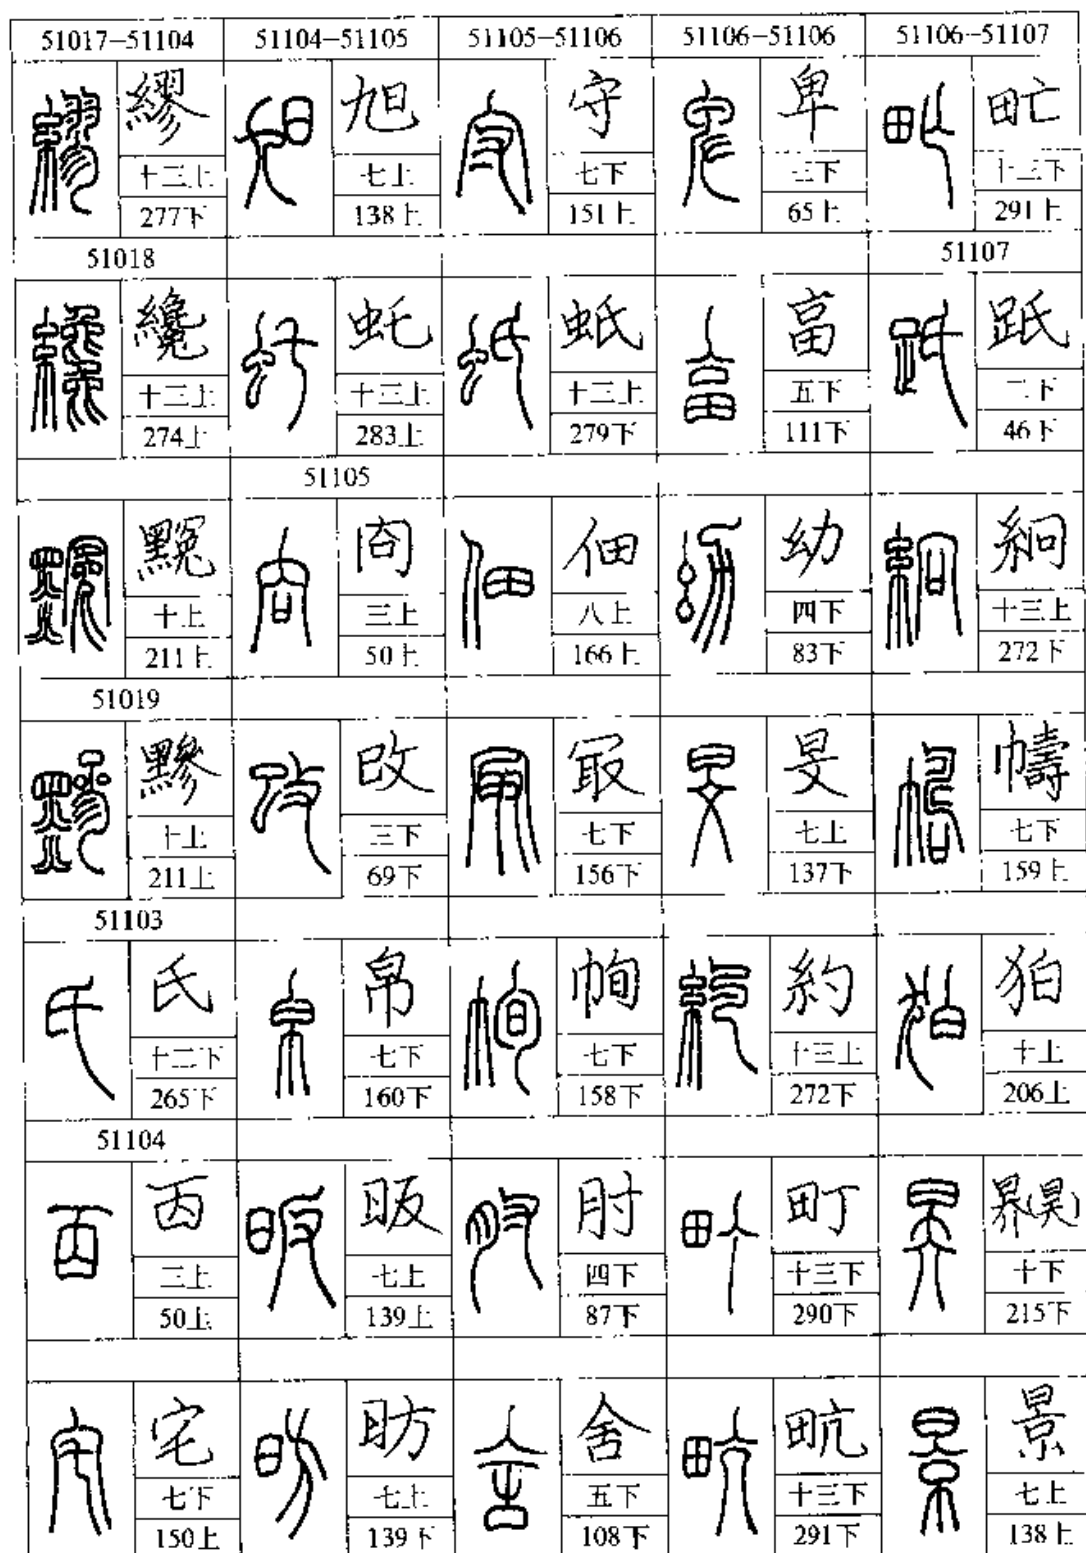 51017-51104
繆
十三上
277下
51018
纔
十三上
274上
十上
211上
51019
黲
十上
211上
51103
氏
十二下
265下
51104
㐁
三上
50上
宅
七下
150上
51104-51105
旭
七上
138上
虴
十三上
283上
51105
㕯
三上
50上
攺
三下
69下
帛
七下
160下
昄
七上
139上
昉
七上
139下
51105-51106
守
七下
151上
蚔
十三上
279下
佃
八上
166上
冣
七下
156下
七下
158下
肘
四下
87下
舍
五下
108下
51106-51106
卑
三下
65上
畗
五下
111下
幼
四下
83下
旻
七上
137下
約
十三上
272下
町
十三下
290下
十三下
291下
51106-51107
甿
十三下
291上
51107
二下
46下
絅
十三上
272下
幬
七下
159上
狛
十上
206上
昦(昊)
十下
215下
景
七上
138上